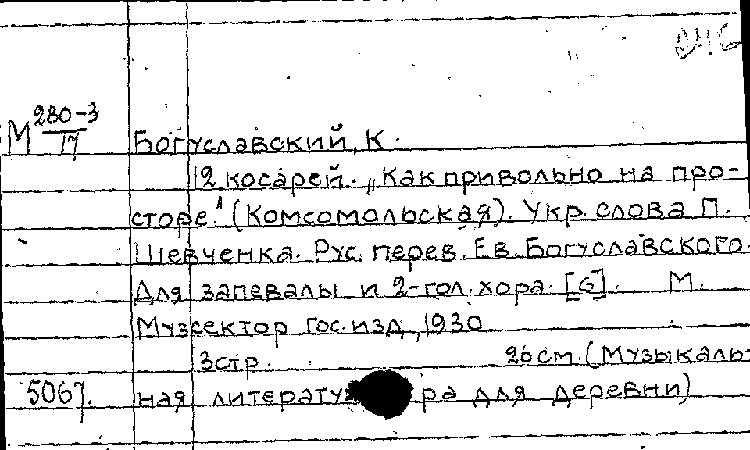 М 280-3
IV
Богуславский, К.
12 косарей. „Как привольно на про-
сторе." (Комсомольская). Укр. слова П.
Шевченка. Рус. перев. Ев. Богуславского.
Для запевалы и 2-гол. хора. [G]. М.
Музсектор Гос. изд., 1930
3 стр. 26 см. (Музыкаль-
5067. ная литерату ра для деревни)